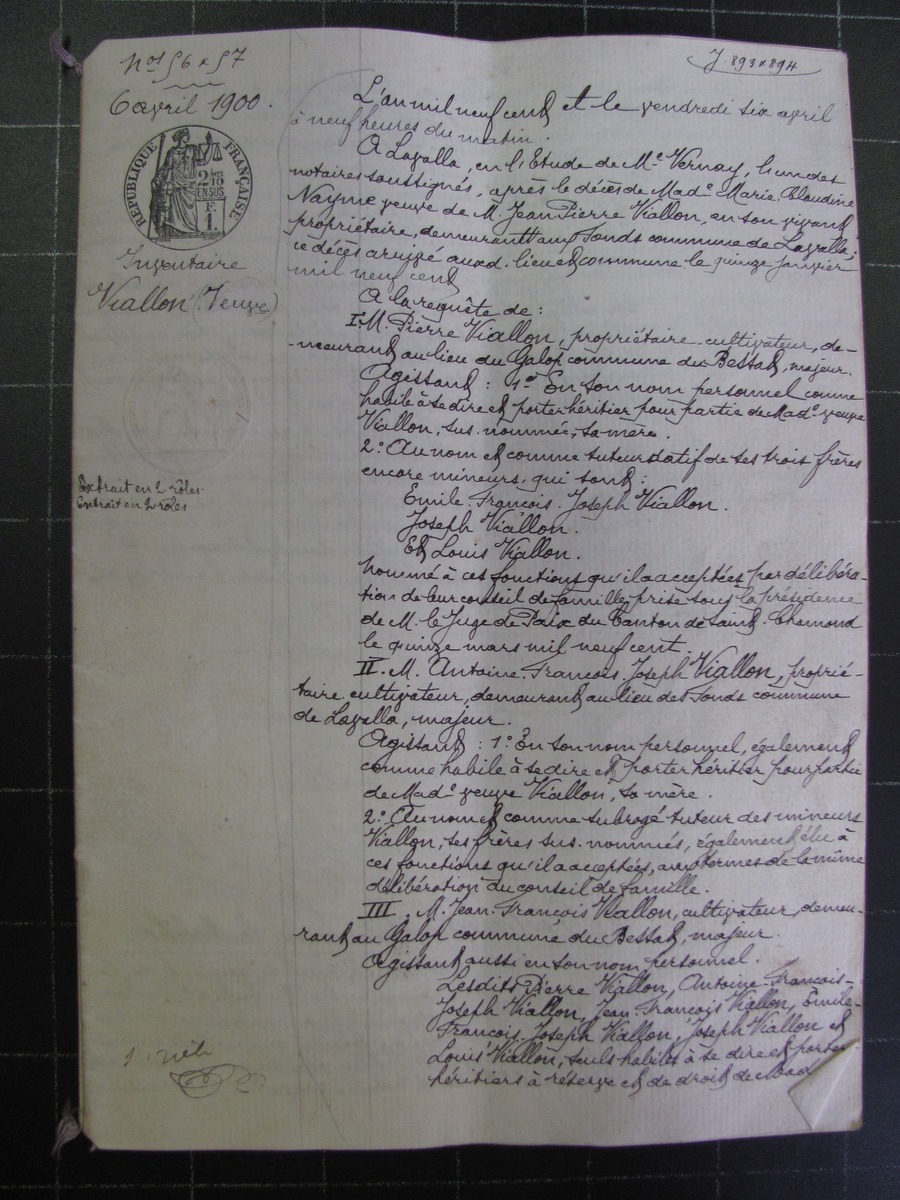 Nos 56 x 57
J. 893 x 894
6 avril 1900.
RÉPUBLIQUE FRANÇAISE
2/10 EN SUS
F.
1.
Inventaire
Viallon (Veuve)
Extrait en 2 rôles
Extrait en 2 rôles
L'an mil neuf cent et le vendredi six avril
à neuf heures du matin.
A Lavalla, en l'Etude de Me. Vernay, l'un des
notaires soussignés, après le décès de Made. Marie Claudine
Nayme veuve de M. Jean Pierre Viallon, en son vivant
propriétaire, demeurant aux Fonds commune de Lavalla;
ce décès arrivé auxd. lieu et commune le quinze janvier
mil neuf cent
A la requête de :
I. M. Pierre Viallon, propriétaire-cultivateur, de-
-meurant au lieu du Galop commune du Bessat, majeur.
Agissant : 1o. En son nom personnel comme
habile à se dire et porter héritier pour partie de Made. veuve
Viallon, sus-nommée, sa mère.
2o. Au nom et comme tuteur datif de ses trois frères
encore mineurs, qui sont :
Emile-François-Joseph Viallon.
Joseph Viallon.
Et Louis Viallon.
nommé à ces fonctions qu'il a acceptées par délibéra-
tion de leur conseil de famille, prise sous la présidence
de M. le Juge de Paix du Canton de Saint-Chamond
le quinze mars mil neuf cent.
II. M. Antoine-François-Joseph Viallon, proprié-
taire-cultivateur, demeurant au lieu des Fonds commune
de Lavalla, majeur.
Agissant : 1o. En son nom personnel, également
comme habile à se dire et porter héritier pour partie
de Made. veuve Viallon, sa mère.
2o. Au nom et comme subrogé tuteur des mineurs
Viallon, ses frères sus-nommés, également élu à
ces fonctions qu'il a acceptées, aux termes de la même
délibération du conseil de famille.
III. M. Jean-François Viallon, cultivateur, demeu-
rant au Galop commune du Bessat, majeur.
Agissant aussi en son nom personnel.
Lesdits Pierre Viallon, Antoine-François-
Joseph Viallon, Jean-François Viallon, Emile-
François-Joseph Viallon, Joseph Viallon et
Louis Viallon, seuls habiles à se dire et porter
héritiers à réserve et de droit de Mad